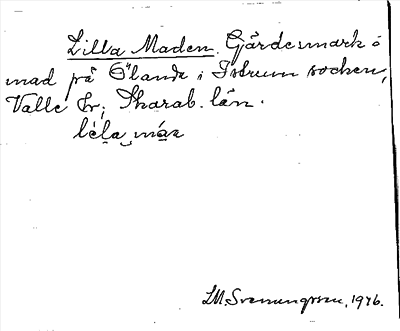 Lilla Maden. Gärdesmark å
mad på Öland i Istrum socken,
Valle hr; Skarab. län.
lèla
LM. Svenungsson, 1976.